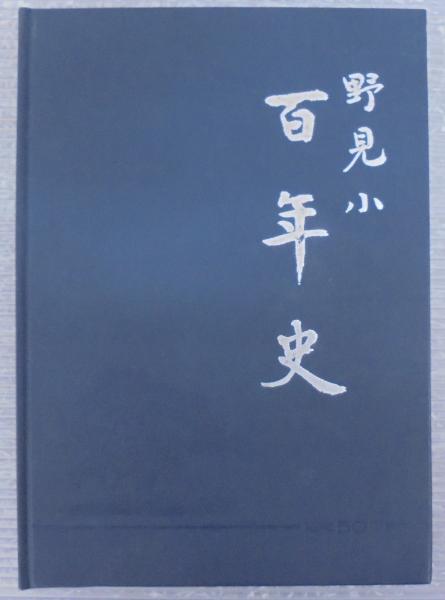 野見小
百年史